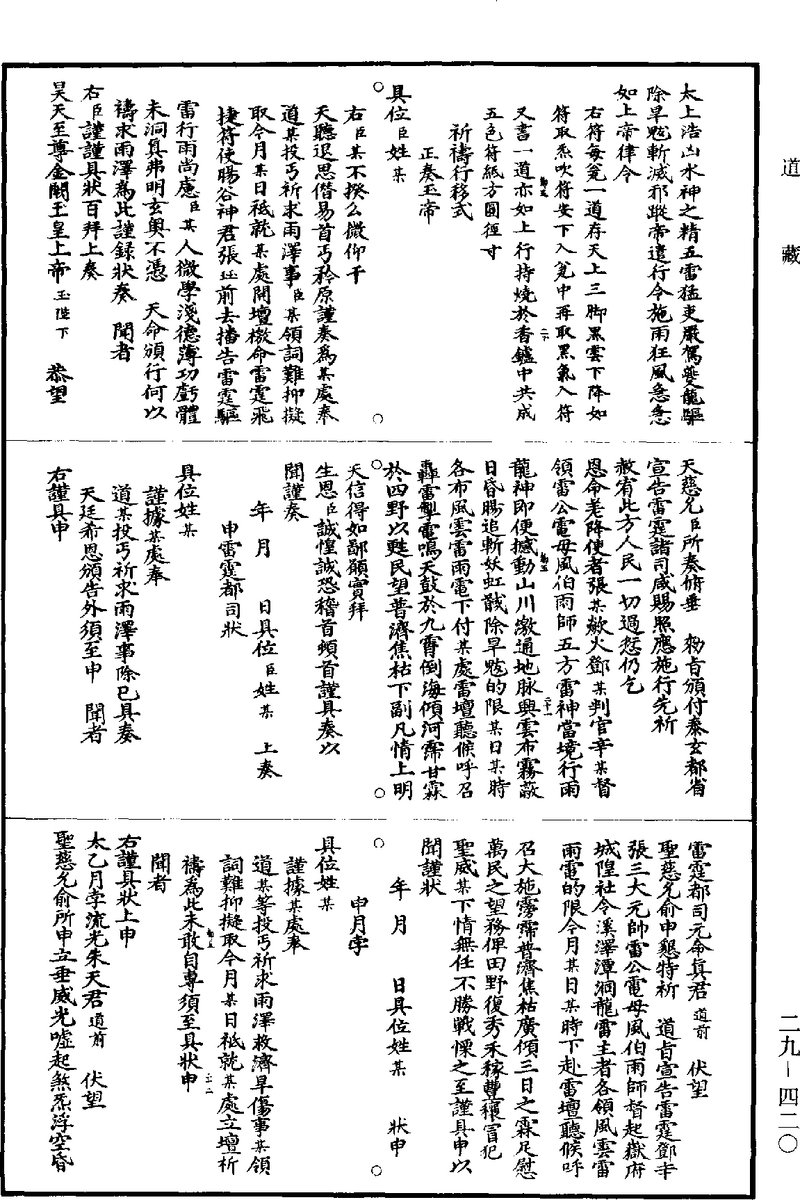 道藏
二九－四二〇
太上浩凶水神之精五雷猛吏嚴駕夔龍驅
除旱魃斬滅邪蹤帝遣行令施雨狂風急急
如上帝律令
右符每瓮一道存天上三脚黑雲下降如
符取炁吹符安下入瓮中再取黑氣入符
又書一道亦如上行持燒於香鑪中共成
五色符紙方圓徑寸
祈禱行移式
正奏玉帝
具位臣姓某
右臣某不揆么微仰干
天聽退思僭易首丐矜原謹奏爲某處奉
道某投丐祈求雨澤事臣某領詞難抑擬
取今月某日祗就某處開壇檄命雷霆飛
捷符使暘谷神君張珏前去播告雷霆驅
雷行雨尚慮臣某人微學淺德薄功虧體
未洞真弗明玄奧不憑　天命頒行何以
禱求雨澤爲此謹録狀奏　聞者
右臣謹謹具狀百拜上奏
昊天至尊金闕玉皇上帝玉陛下　恭望
天慈允臣所奏俯垂　勑旨頒付泰玄都省
宣告雷霆諸司咸賜照應施行先祈
赦宥此方人民一切過愆仍乞
恩命老降使者張某歘火鄧某判官辛某督
領雷公電母風伯雨師五方雷神當境行雨
龍神即便撼動山川激通地脉興雲布霧蔽
日昏暘追斬妖虹戩除旱魃的限某日某時
各布風雲雷雨電下付某處雷壇聽候呼召
轟雷掣電鳴天鼓於九霄倒海傾河霈甘霖
於四野以甦民望普濟焦枯下副凡情上明
天信得如鄙願實拜
生恩臣誠惶誠恐稽首頓首謹具奏以
聞謹奏
年　月　　日具位臣姓某　上奏
申雷霆都司狀
具位姓某
謹據某處奉
道某投丐祈求雨澤事除已具奏
天廷希恩頒告外須至申　聞者
右謹具申
雷霆都司元命真君道前　伏望
聖慈允俞申懇特祈　道旨宣告雷霆鄧辛
張三大元帥雷公電母風伯雨師督起嶽府
城隍社令溪澤潭洞龍雷主者各領風雲雷
雨電的限今月某日某時下赴雷壇聽候呼
召大施霶霈普濟焦枯廣傾三日之霖足慰
萬民之望務俾田野復秀禾稼豐穰冒犯
聖威某下情無任不勝戰慄之至謹具申以
聞謹狀
年　月　　日具位姓某　　狀申
申月孛
具位姓某
謹據某處奉
道某等投丐祈求雨澤救濟旱傷事某領
詞難抑擬取今月某日祗就某處立壇祈
禱爲此未敢自專須至具狀申
聞者
右謹具狀上申
太乙月孛流光朱天君道前　伏望
聖慈允俞所申立垂威光嘘起煞炁浮空昏